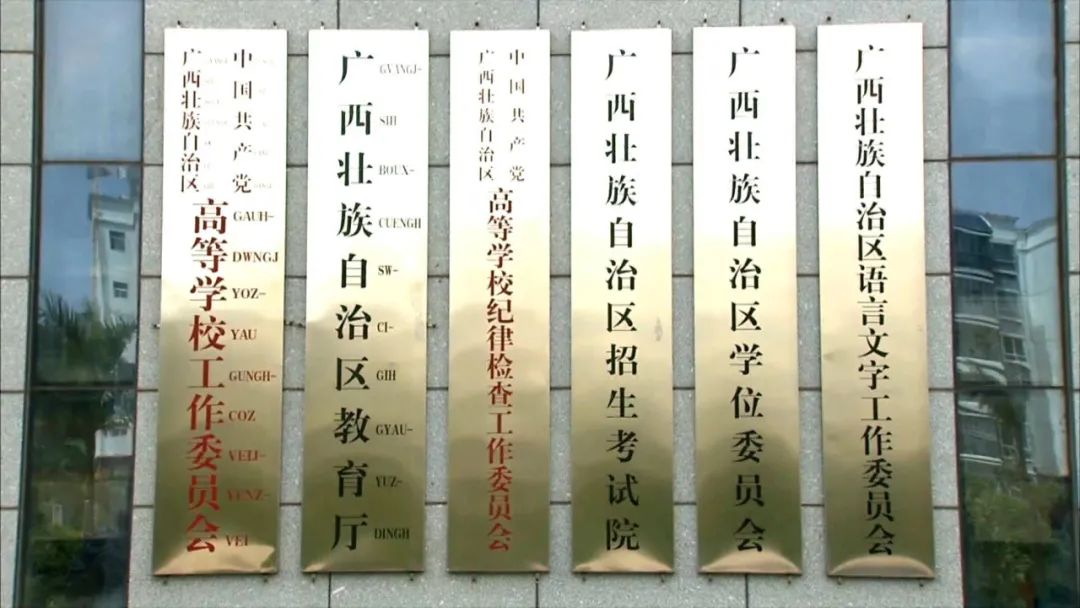 中国共产党
广西壮族自治区
高等学校工作委员会
GAUH-
DWNGJ
YOZ-
YAU
GUNGH-
COZ
VEIJ-
YENZ-
VEI
广西壮族自治区教育厅
GVANGJ-
SIH
BOUX-
CUENGH
SW-
CI-
GIH
GYAU-
YUZ-
DINGH
中国共产党
广西壮族自治区
高等学校纪律检查工作委员会
广西壮族自治区招生考试院
广西壮族自治区学位委员会
广西壮族自治区语言文字工作委员会